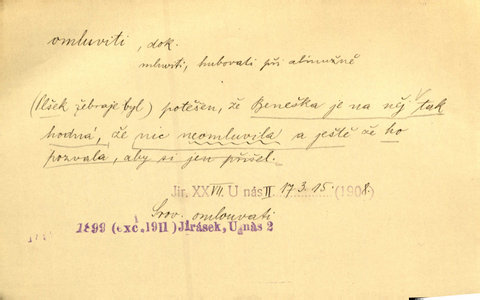 omluviti, dok.
mluviti, hubovati při almužně
(Ilšek žebraje byl) potěšen, že Beneška je na něj tak
hodná, že nic neomluvila a ještě že ho
pozvala, aby si jen přišel.
Jir. XXVII, U nás II 17 3. 15. (1908.
Srov. omlouvati
1899 (exc. 1911) Jirásek, U nás 2